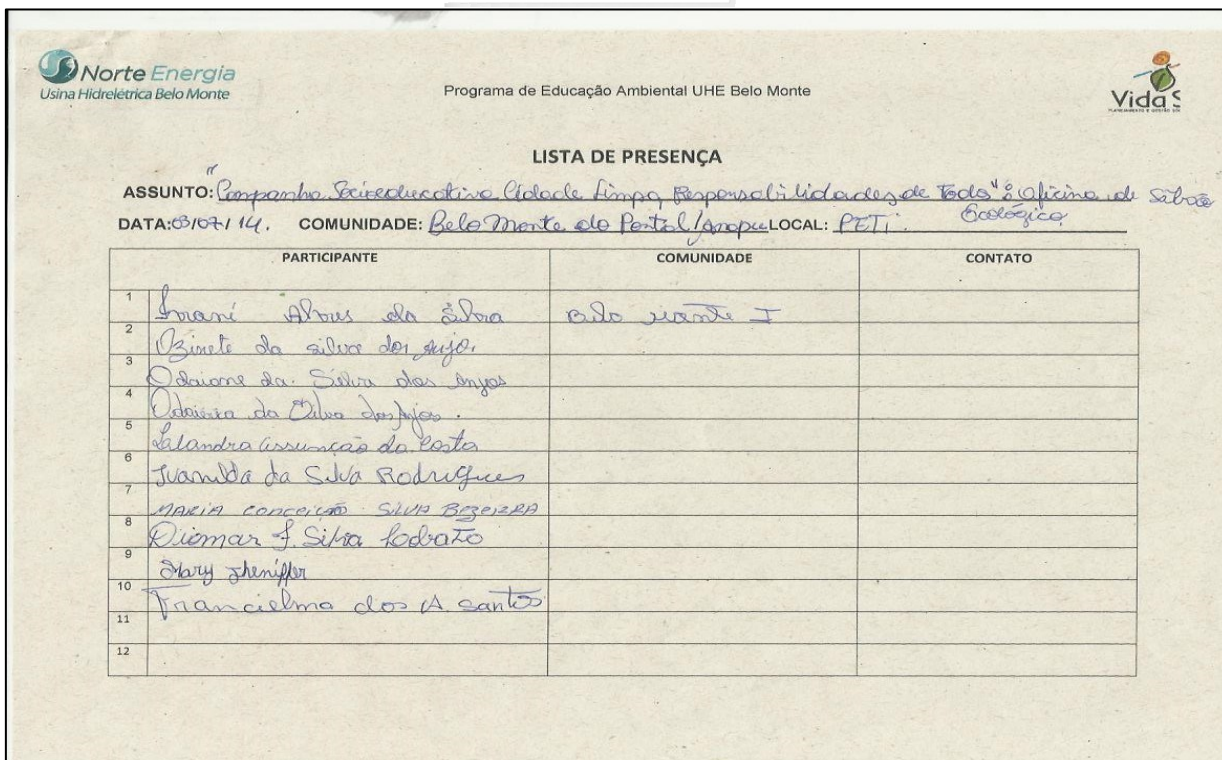 Norte Energia
Usina Hidrelétrica Belo Monte
Programa de Educação Ambiental UHE Belo Monte
Vida S
LISTA DE PRESENÇA
ASSUNTO: "Campanha Socioeducativa Cidade Limpa Responsabilidades de Todos" : Oficina de Sabão
Ecológico
DATA: 03/07/14. COMUNIDADE: Belo Monte do Pontal/Anapu LOCAL: PETI.
PARTICIPANTE COMUNIDADE CONTATO
1 Alves da Silva Belo Monte I
2 Ozinete da silva dos anjos
3 Odaiane da Silva dos Anjos
4 da Silva dos Anjos.
5 Assunção da Costa
6 Ivanilda da Silva Rodrigues
7 MARIA CONCEIÇÃO SILVA BEZERRA
8 F. Silva Lobato
9 Mary Jheniffer
10 Francielma dos A. Santos
11
12